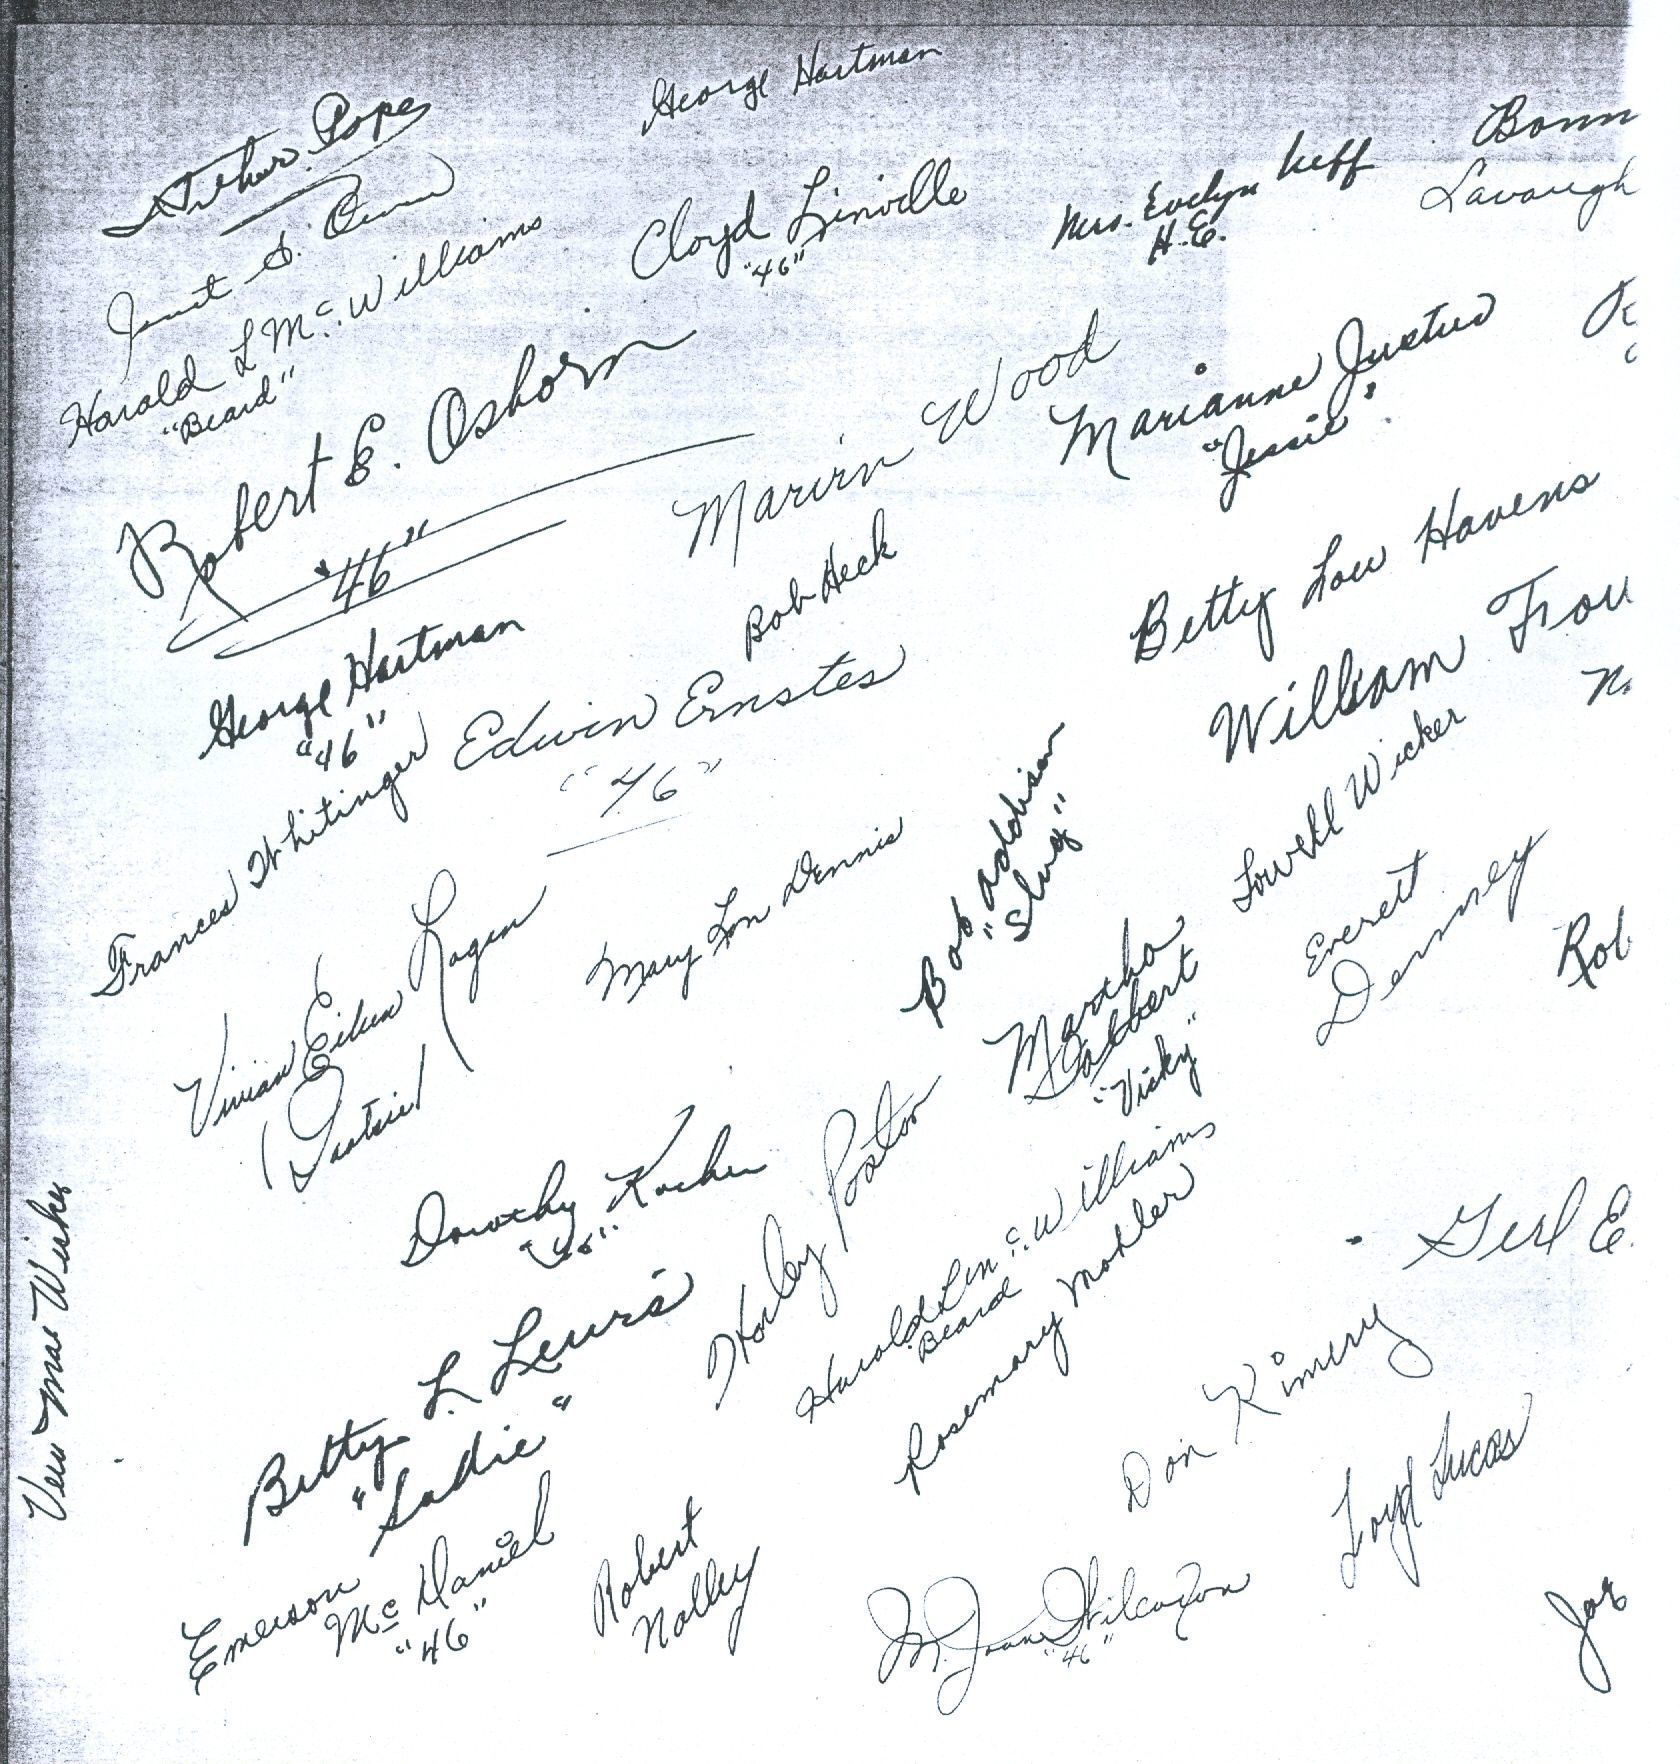 George Hartman
Arthur Pope
Bonn
Mrs. Evelyn Neff
H.E.
Lavaugh
Cloyd Linville
"46"
Harold L McWilliams
"Beard"
Robert E. Osborn
"46"
Marvin Wood
Marianne Justus
"Jessie"
Betty Lou Havens
Bob Heck
George Hartman
"46"
William Fou
Edwin Ernstes
"46"
Frances Whitinger
Lowell Wicker
Bob Addison
"Slug"
Mary Lou Dennis
Everett
Denney
Rob
Vivian Eileen Logan
Martha
Talbert
"Vicky"
Dorothy
"46"
Harley Poston
Harold Len McWilliams
Beard
Rosemary Mohler
E.
Betty L. Lewis
"Sadie"
Don Kimery
Loyd Lucas
Emerson
McDaniel
"46"
Robert
Nolley
M. Joan Wilcoxon
"46"
Joe
Mae